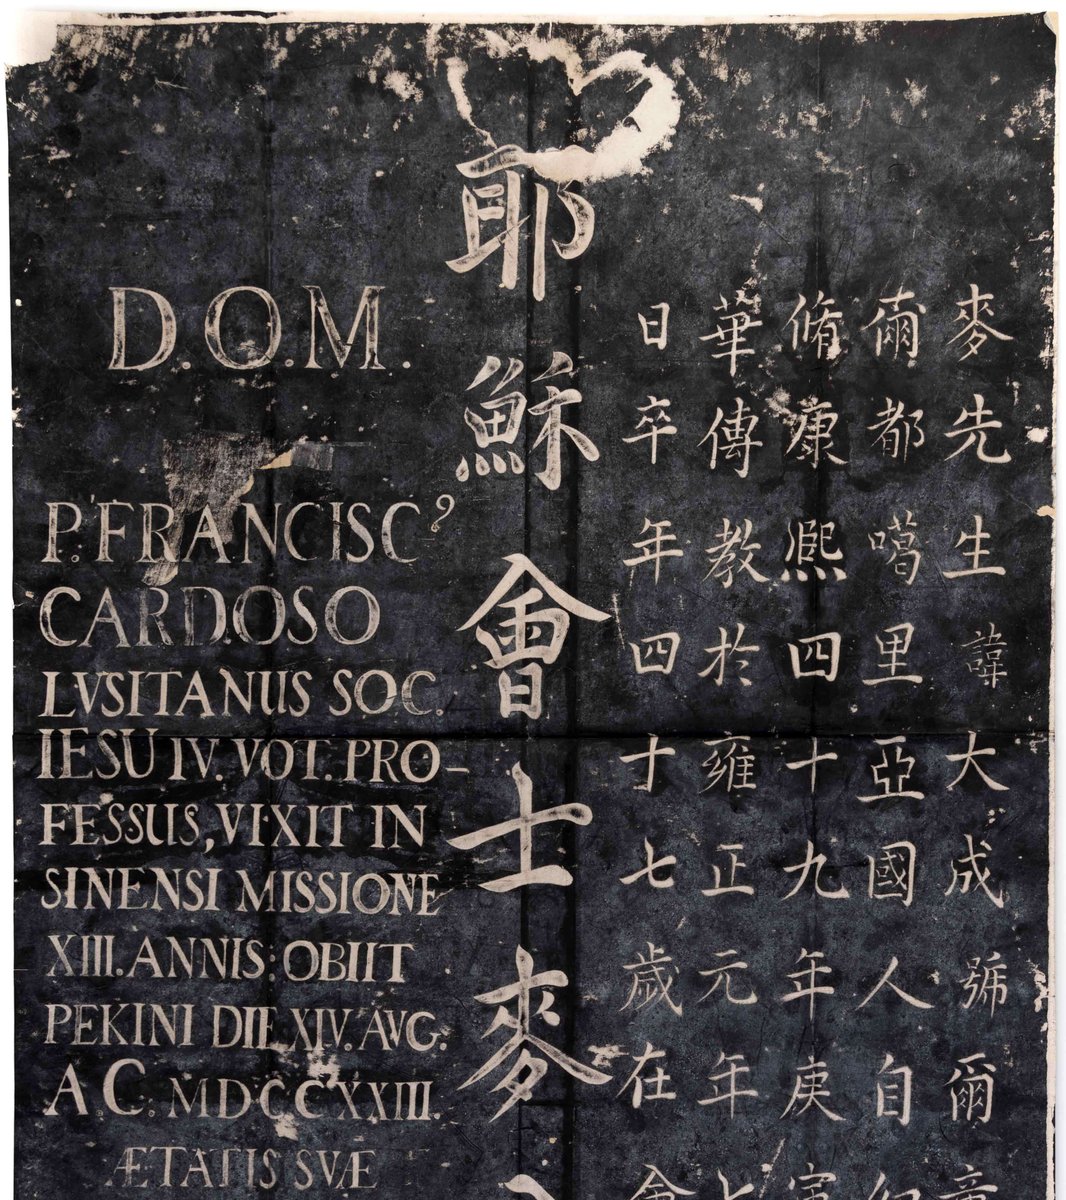 D.O.M.
P. FRANCISC⁹
CARDOSO
LVSITANUS SOC.
IESU IV. VOT. PRO-
FESSUS, VIXIT IN
SINENSI MISSIONE
XIII. ANNIS: OBIIT
PEKINI DIE XIV. AVG.
A.C. MDCCXXIII.
ÆTATIS SVÆ
耶穌會士麥
麥先生諱大成號爾
爾都噶里亞國人自
脩康熙四十九年庚
華傳教於雍正元年
日卒年四十七歲在